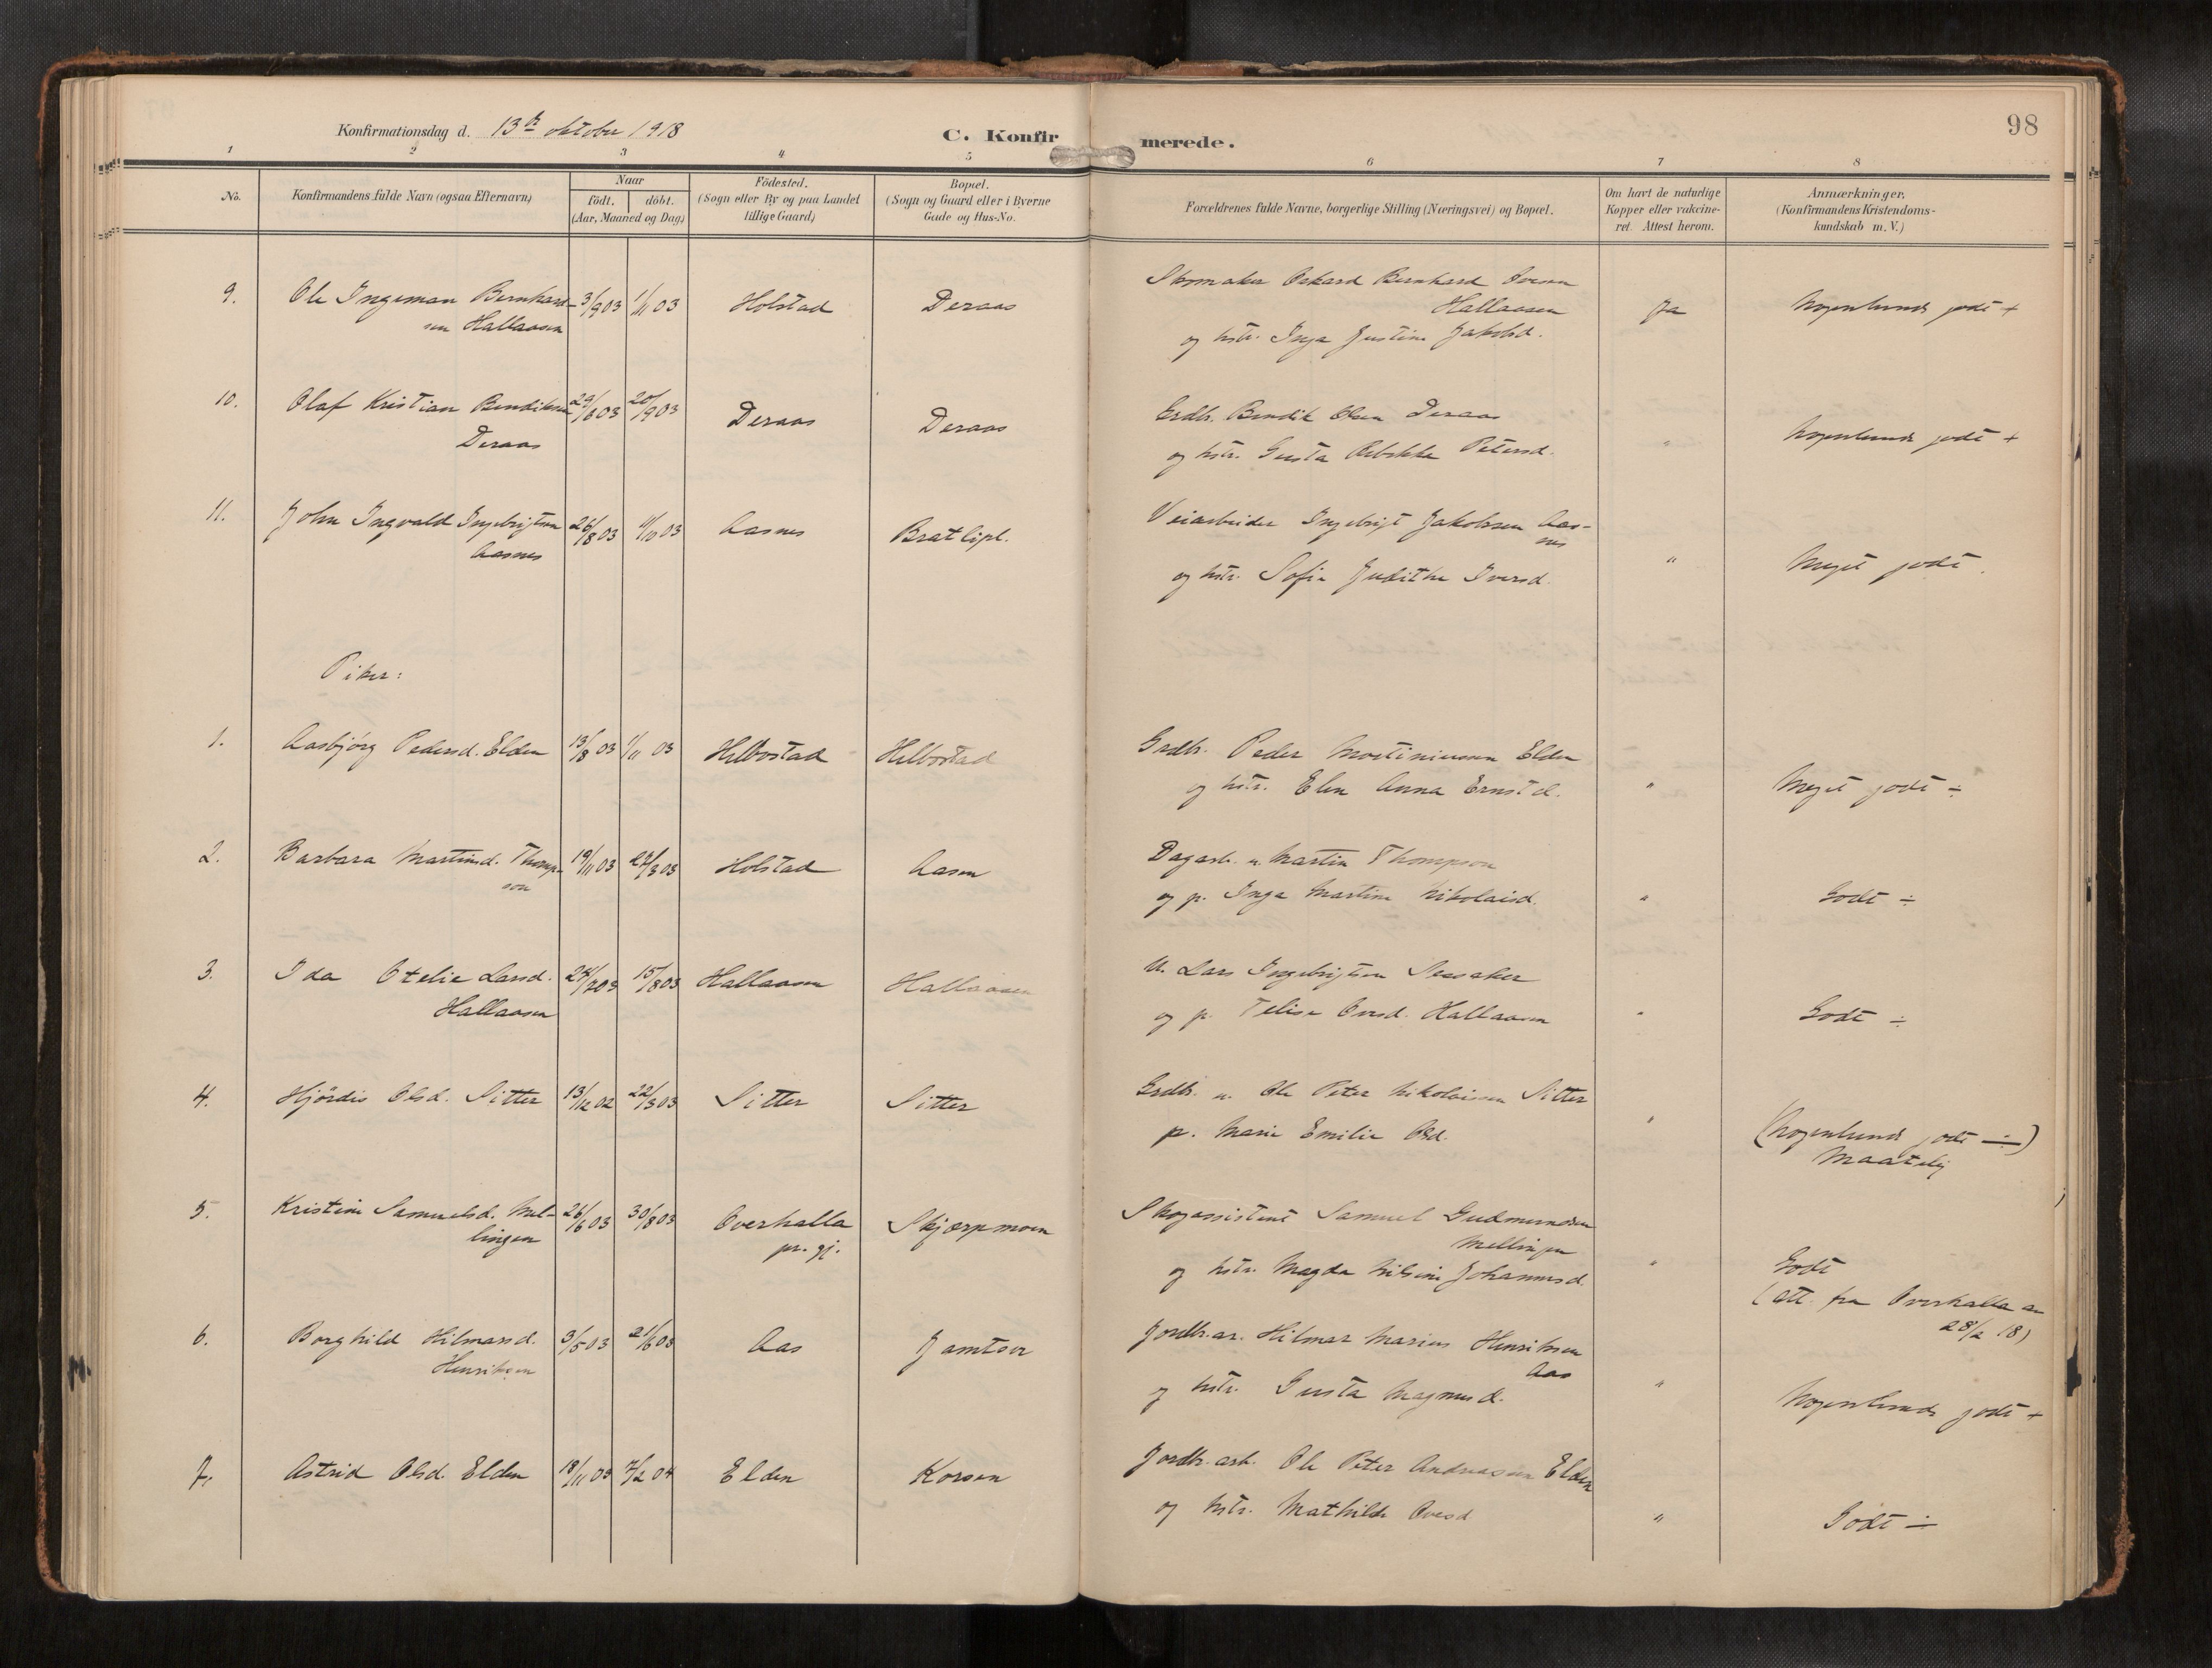 Konfirmationsdag d. 13de oktober 1918
C. Konfirmerede.
98
1 2 3 4 5 6 7 8
No.
Konfirmandens fulde Navn (ogsaa Efternavn)
Naar
födt. döbt.
(Aar, Maaned og Dag)
Födested.
(Sogn eller By og paa Landet
tillige Gaard)
Bopæl.
(Sogn og Gaard eller i Byerne
Gade og Hus-No.
Forældrenes fulde Navne, borgerlige Stilling (Næringsvei) og Bopæl.
Om havt de naturlige
Kopper eller vakcine-
ret. Attest herom.
Anmærkninger.
(Konfirmandens Kristendoms-
kundskab m. V.)
9. Ole Ingeman Bernhard- 3/9 03 1/11 03 Holstad Deraas Skomaker Bernhard
sen Hallaasen Hallaasen Ja Nogenlunde godt +
og hstr. Inga Justine Jakobsd.
10. Olaf Kristian Bendiksen 29/6 03 20/9 03 Deraas Deraas Grdbr. Bendik Olsen Deraas
Deraas og hstr. Gusta Rebekka Petersd. " Nogenlunde godt +
11. John Ingvald Ingebrigtsen 26/8 03 11/10 03 Aasnes Bratlipl. Veiarbeider Ingebrigt Jakobsen Aas-
Aasnes nes
og hstr. Sofie Judithe Iversd. " Meget godt.
Piker:
1. Aasbjørg Pedersd. Elden 13/8 03 1/11 03 Helbostad Helbostad Grdbr. Peder Mortiniussen Elden
og hstr. Elen Anna Ernstd. " Meget godt ÷
2. Barbara Martinsd. Thomp- 19/11 03 Holstad Aasen Dagarb. u. Martin Thompson
son og p. Inga Martine Nikolaisd. " Godt ÷
3. Ida Otelie Larsd. 15/8 03 Hallaasen Hallaasen U. Lars Ingebrigtsen Sessaker
Hallaasen og p. Telise Ovesd. Hallaasen " Godt ÷
4. Hjördis Olsd. Sitter 13/12 02 22/3 03 Sitter Sitter Grdbr. u. Ole Peter Nikolaisen Sitter
p. Marie Emilie Olsd. " (Nogenlunde godt ÷)
Maatelig
5. Kristine Samuelsd. Mel- 26/6 03 30/8 03 Overhalla Skjærpmoen Skogassistent Samuel Gudmundsen
lingen pr. gj. Mellingen
og hstr. Magda Nilsine Johannesd. " Godt
(att. fra Overhalla av
28/2 18)
6. Borghild Hilmarsd. 3/5 03 21/6 03 Aas Jamtsve Jordbr.ar. Hilmar Marius Henriksen
Henriksen Aas
og hstr. Gusta Magnusd. " Nogenlunde godt +
7. Astrid Olsd. Elden 18/11 03 7/2 04 Elden Korsen Jordbr. arb. Ole Peter Andreassen Elden
og hstr. Mathilde Ovesd " Godt ÷